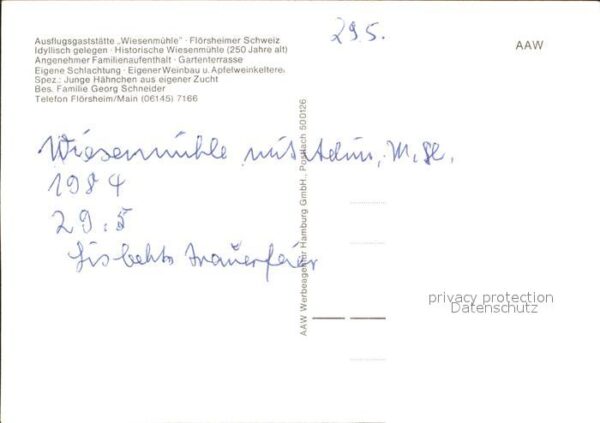 Ausflugsgaststätte „Wiesenmühle" · Flörsheimer Schweiz
Idyllisch gelegen · Historische Wiesenmühle (250 Jahre alt)
Angenehmer Familienaufenthalt · Gartenterrasse
Eigene Schlachtung · Eigener Weinbau u. Apfelweinkelterei
Spez.: Junge Hähnchen aus eigener Zucht
Bes. Familie Georg Schneider
Telefon Flörsheim/Main (06145) 7166
29.5.
AAW
Wiesenmühle mit
1984
29.5
Lisbeths Trauerfeier
AAW Werbeagentur Hamburg GmbH., Postfach 500126
privacy protection
Datenschutz